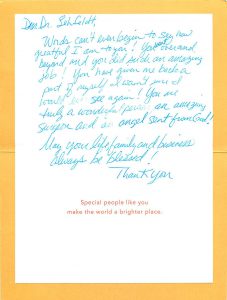 Dear Dr.
Words can't ever begin to say how
greatful I am to you! You went above and
beyond and you did such an amazing
job! You have given me back a
part of myself I wasn't sure I
would ever see again! You are
truly a wonderful person an amazing
surgeon and an angel sent from God!
May your life, family and business
always be blessed!
Thank you
Special people like you
make the world a brighter place.